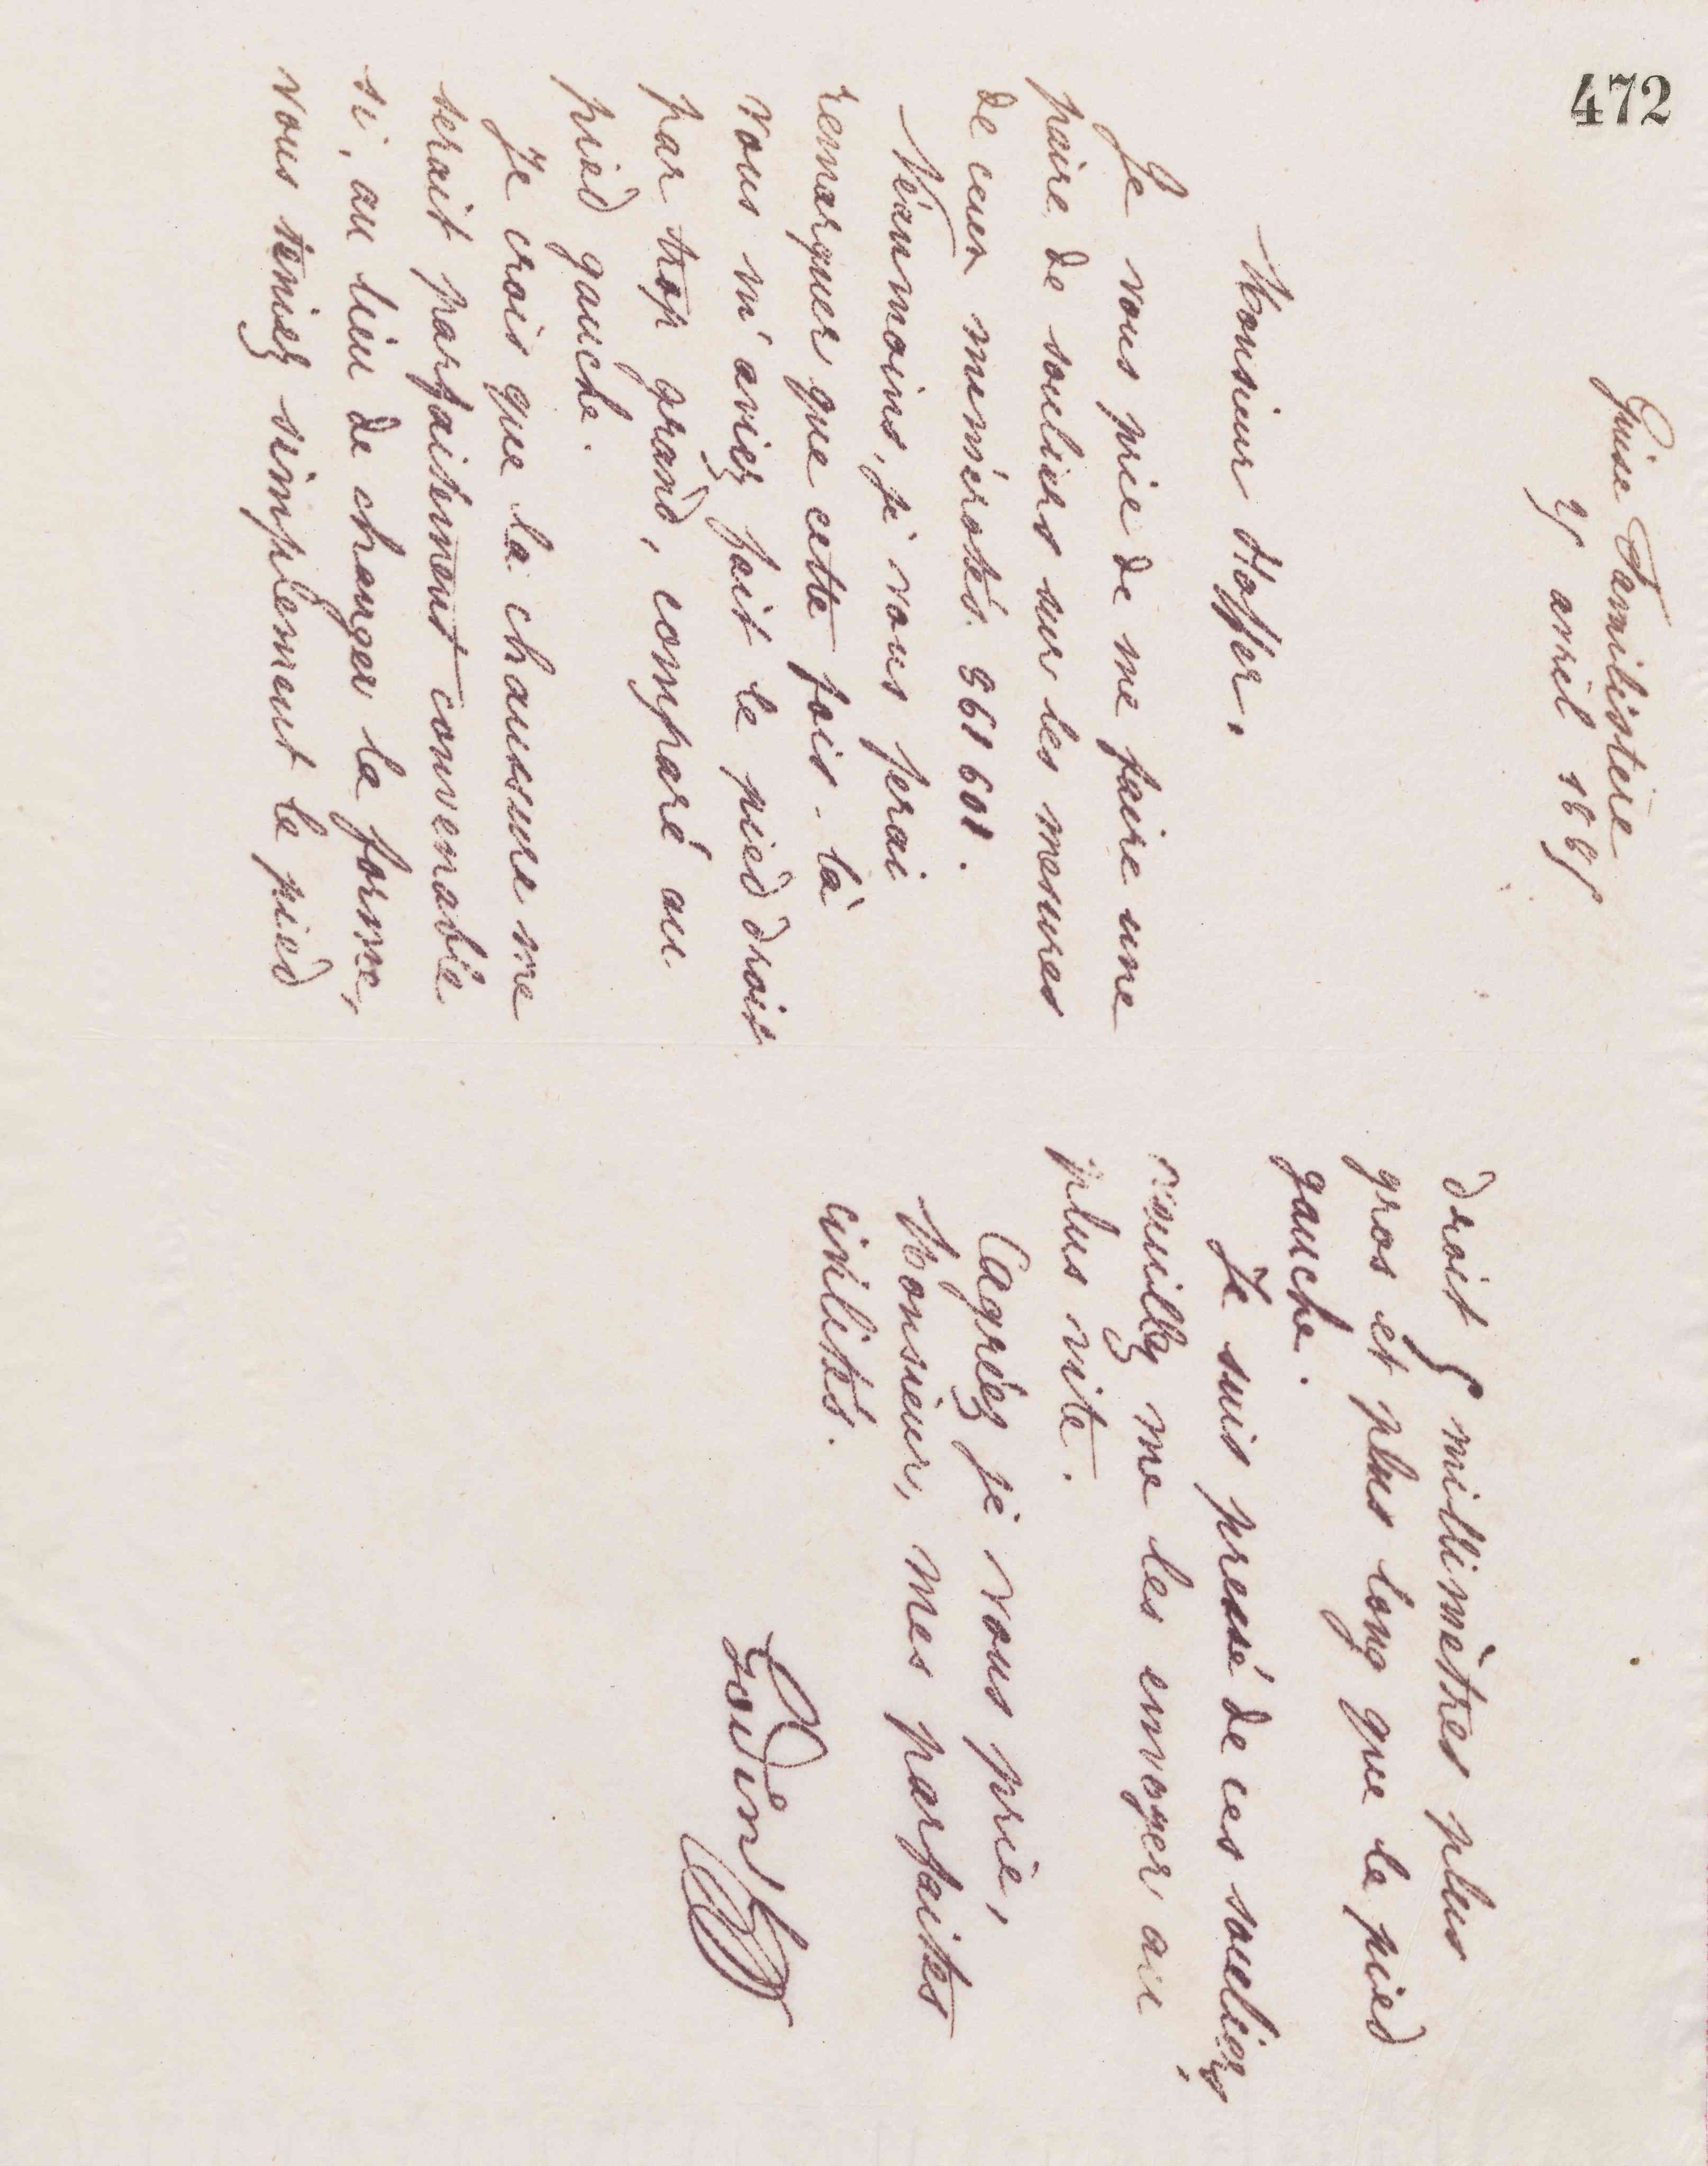 472
Guise Familistère
25 avril 1885
Monsieur Hoffer,
Je vous prie de me faire une
paire de souliers sur les mesures
de ceux numérotés
Néanmoins, je vous ferai
remarquer que cette fois-là
vous m'aviez fait le pied droit
par trop grand, comparé au
pied gauche.
Je crois que la chaussure me
serait parfaitement convenable
si, au lieu de changer la forme,
vous teniez simplement le pied
droit 5 millimètres plus
gros et plus long que le pied
gauche.
Je suis pressé de ces souliers,
veuillez me les envoyer au
plus vite.
Agréez je vous prie,
Monsieur, mes parfaites
civilités.
Godin